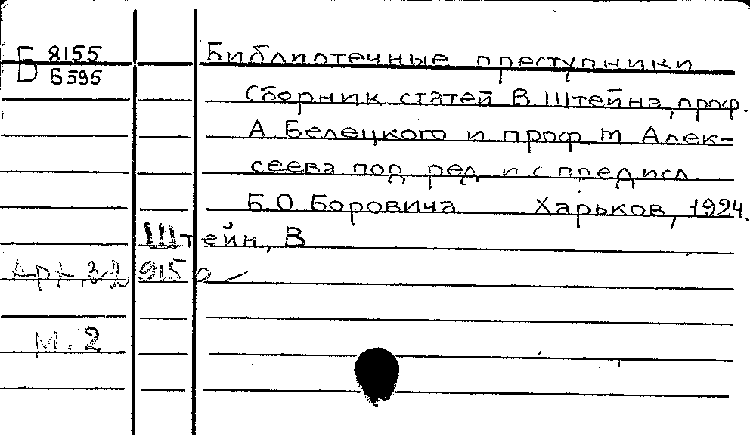 Б 8155 Библиотечные преступники
Б595
Сборник статей В. Штейна, проф.
А. Белецкого и проф. М. Алек-
сеева под ред. и с предисл.
Б.О. Боровича Харьков, 1924.
Штейн, В
915
М. 2